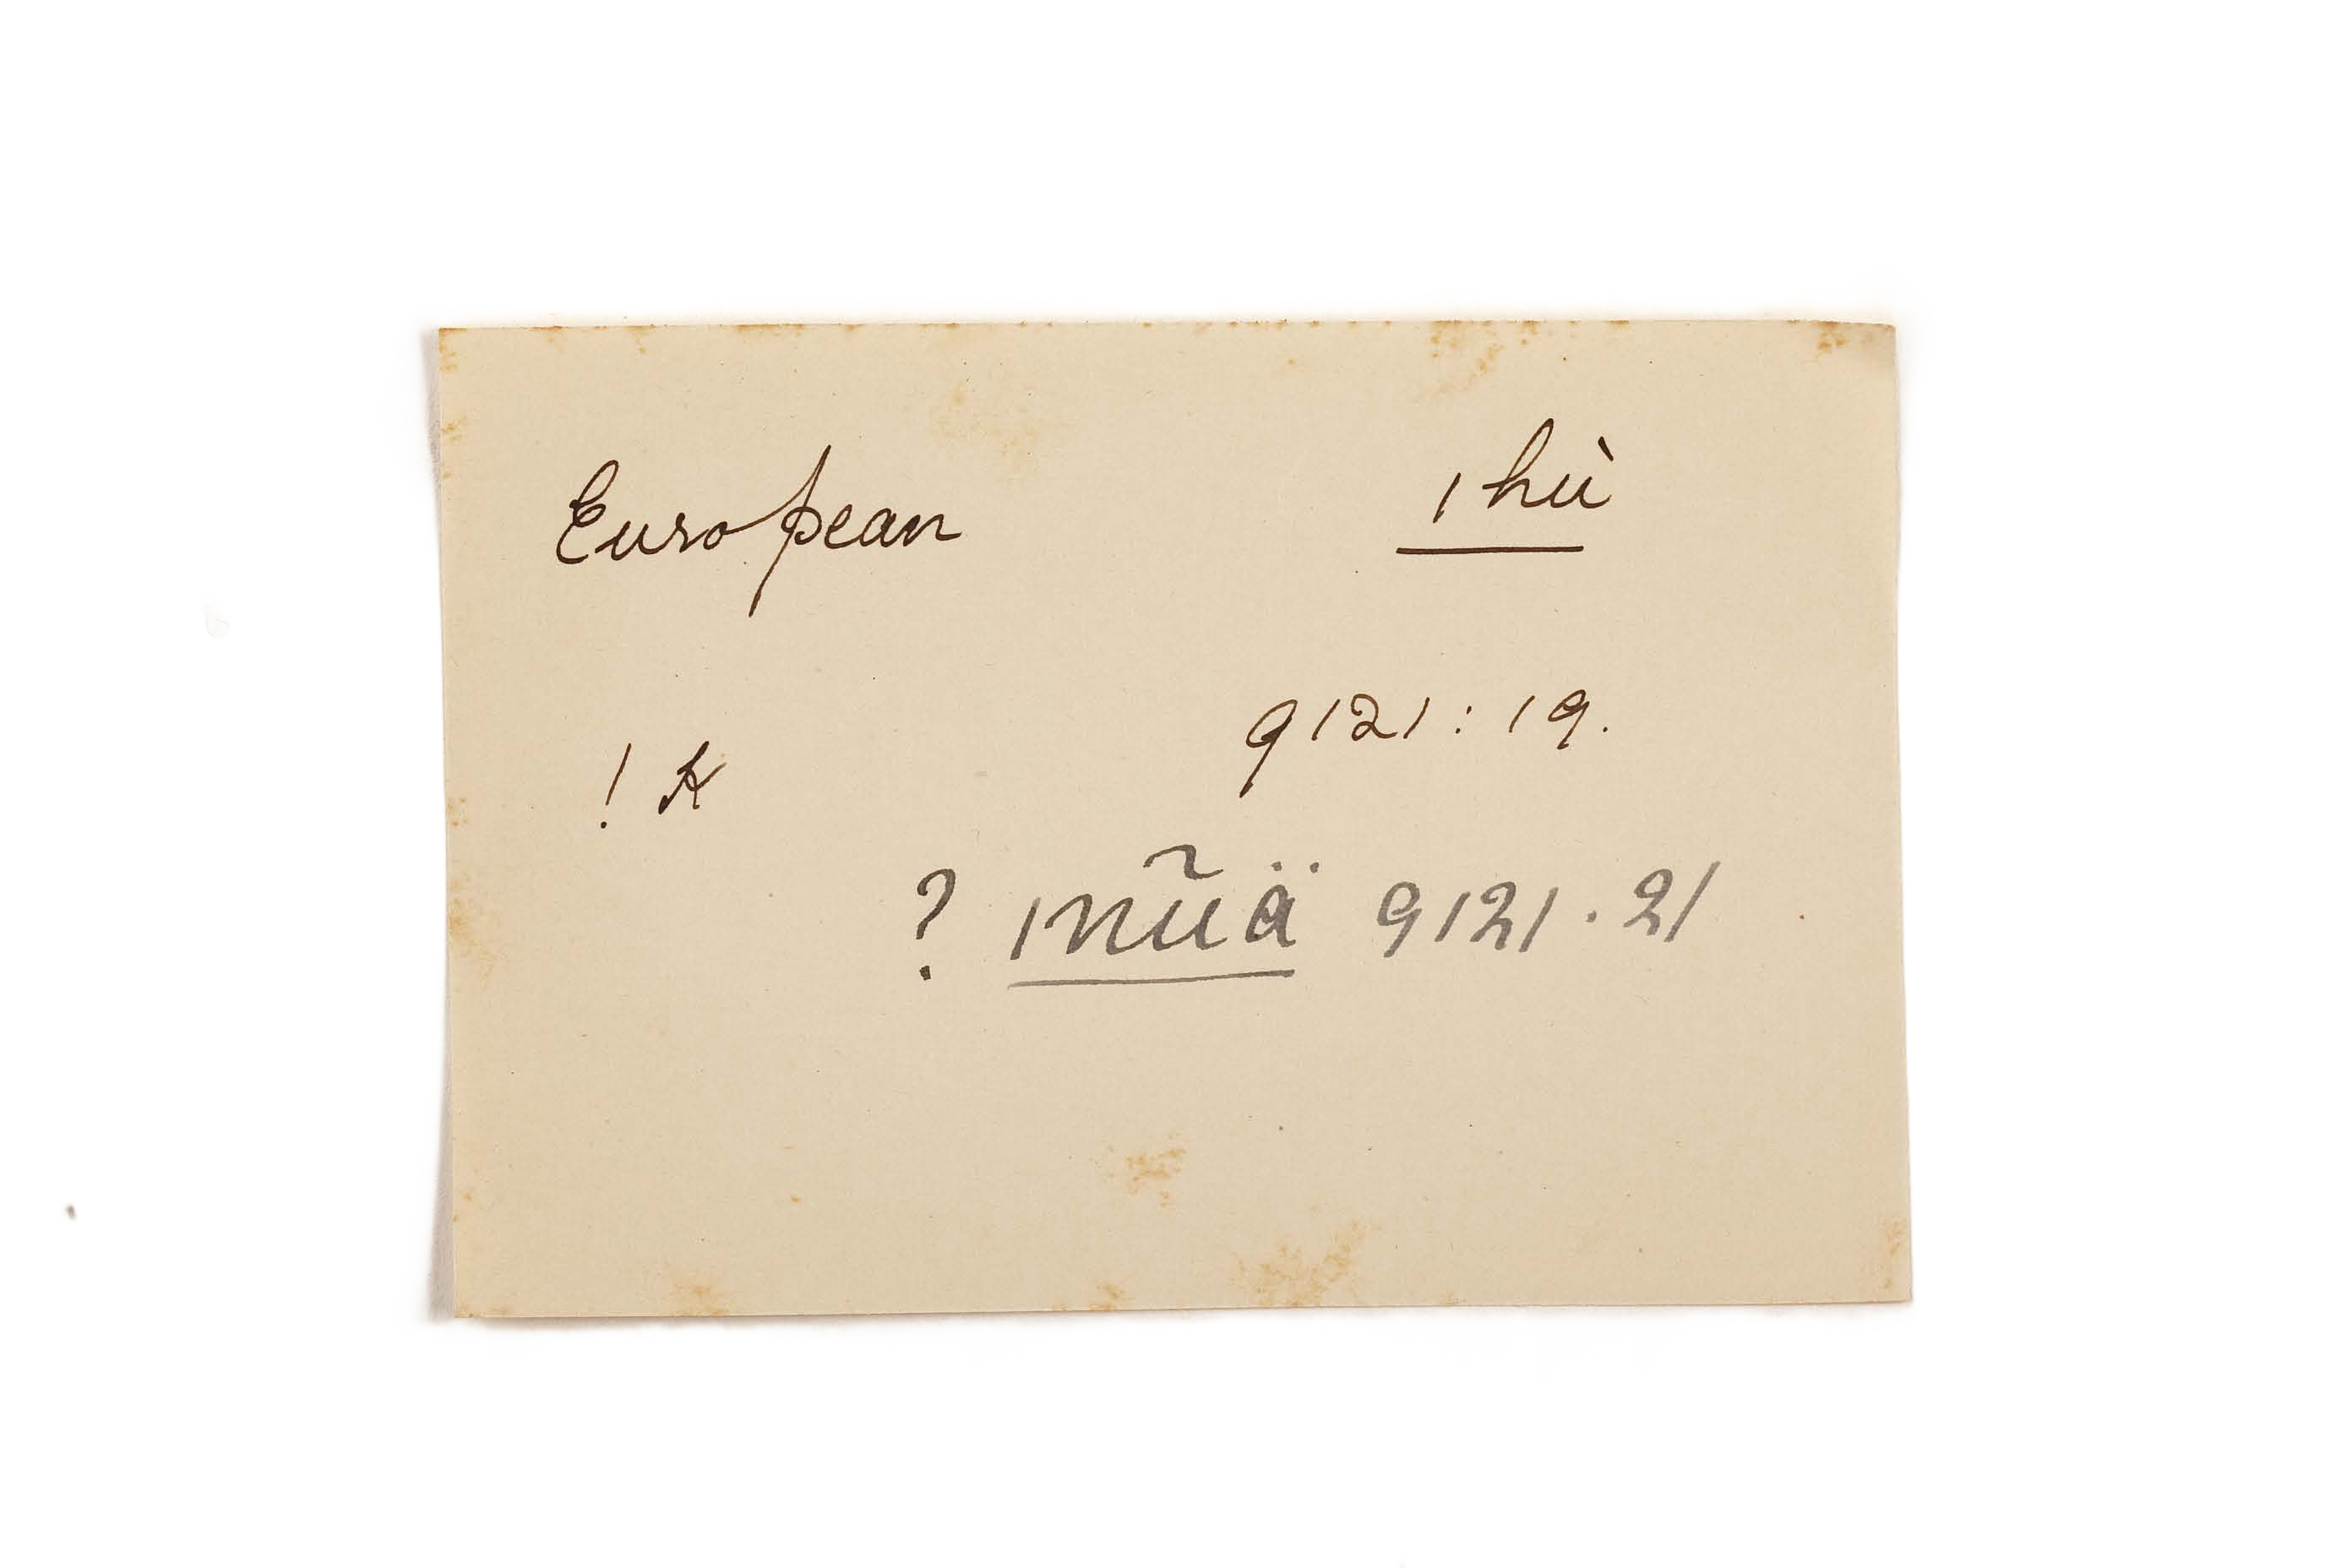 European ǀhù
9121:19.
! k
? ǀnũä 9121.21